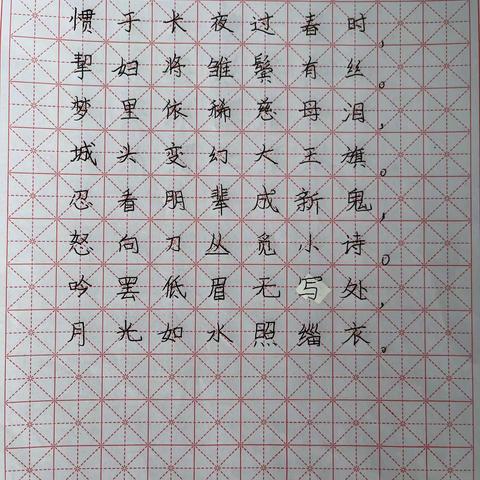 惯于长夜过春时,
挈妇将雏鬓有丝。
梦里依稀慈母泪,
城头变幻大王旗。
忍看朋辈成新鬼,
怒向刀丛觅小诗。
吟罢低眉无写处,
月光如水照缁衣。